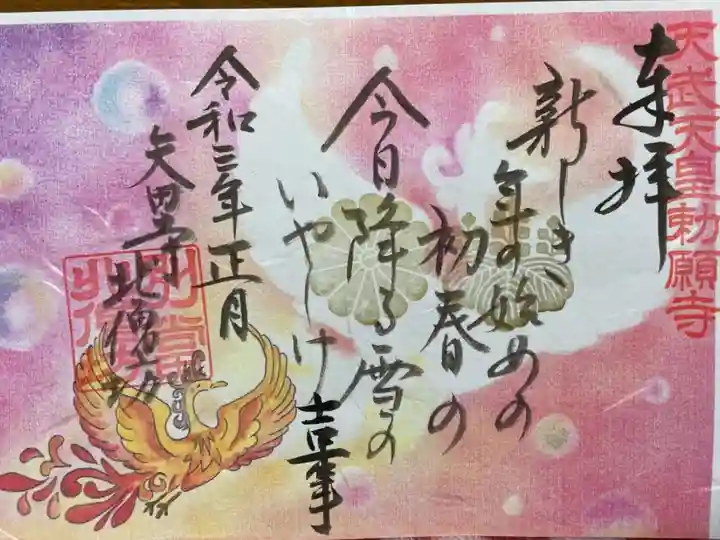 天武天皇勅願寺
奉拝
新しき
年の始めの
初春の
今日降る雪の
いやしけ
吉事
令和三年正月
矢田寺
北僧坊